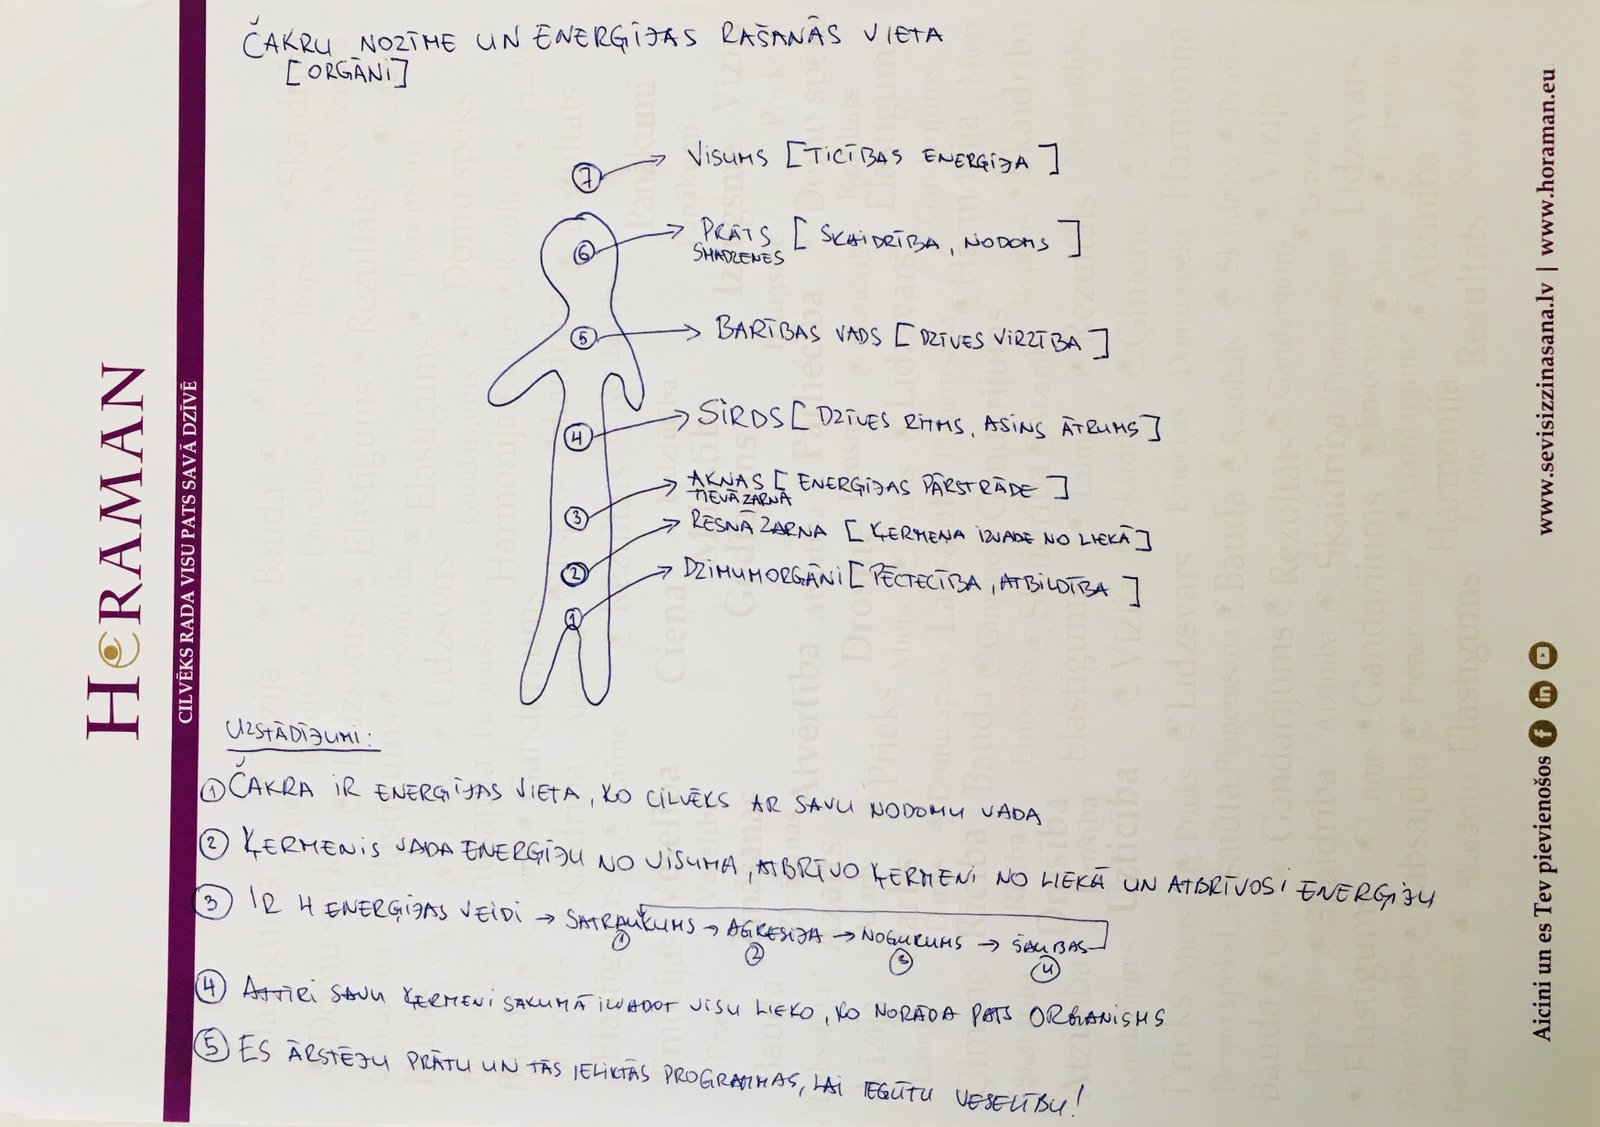 ČAKRU NOZĪME UN ENERĢIJAS RAŠANĀS VIETA
[ORGĀNI]
7 → VISUMS [TICĪBAS ENERĢIJA]
6 → PRĀTS [SKAIDRĪBA, NODOMS]
SMADZENES
5 → BARĪBAS VADS [DZĪVES VIRZĪBA]
4 → SIRDS [DZĪVES RITMS, ASINS ĀTRUMS]
3 → AKNAS [ENERĢIJAS PĀRSTRĀDE]
TIEVĀ ZARNA
2 → RESNĀ ZARNA [ĶERMEŅA IZVADE NO LIEKĀ]
1 → DZIMUMORGĀNI [PĒCTECĪBA, ATBILDĪBA]
UZSTĀDĪJUMI:
1 ČAKRA IR ENERĢIJAS VIETA, KO CILVĒKS AR SAVU NODOMU VADA
2 ĶERMENIS VADA ENERĢIJU NO VISUMA, ATBRĪVO ĶERMENI NO LIEKĀ UN ATBRĪVOSI ENERĢIJU
3 IR 4 ENERĢIJAS VEIDI → SATRAUKUMS → AGRESIJA → NOGURUMS → ŠAUBAS
1 2 3 4
4 ATTĪRI SAVU ĶERMENI SĀKUMĀ IZVADOT VISU LIEKO, KO NORĀDA PATS ORGANISMS
5 ES ĀRSTĒJU PRĀTU UN TĀS IELIKTĀS PROGRAMMAS, LAI IEGŪTU VESELĪBU!
HORAMAN
CILVĒKS RADA VISU PATS SAVĀ DZĪVĒ
Aicini un es Tev pievienošos f in www.sevisizzinasana.lv | www.horaman.eu